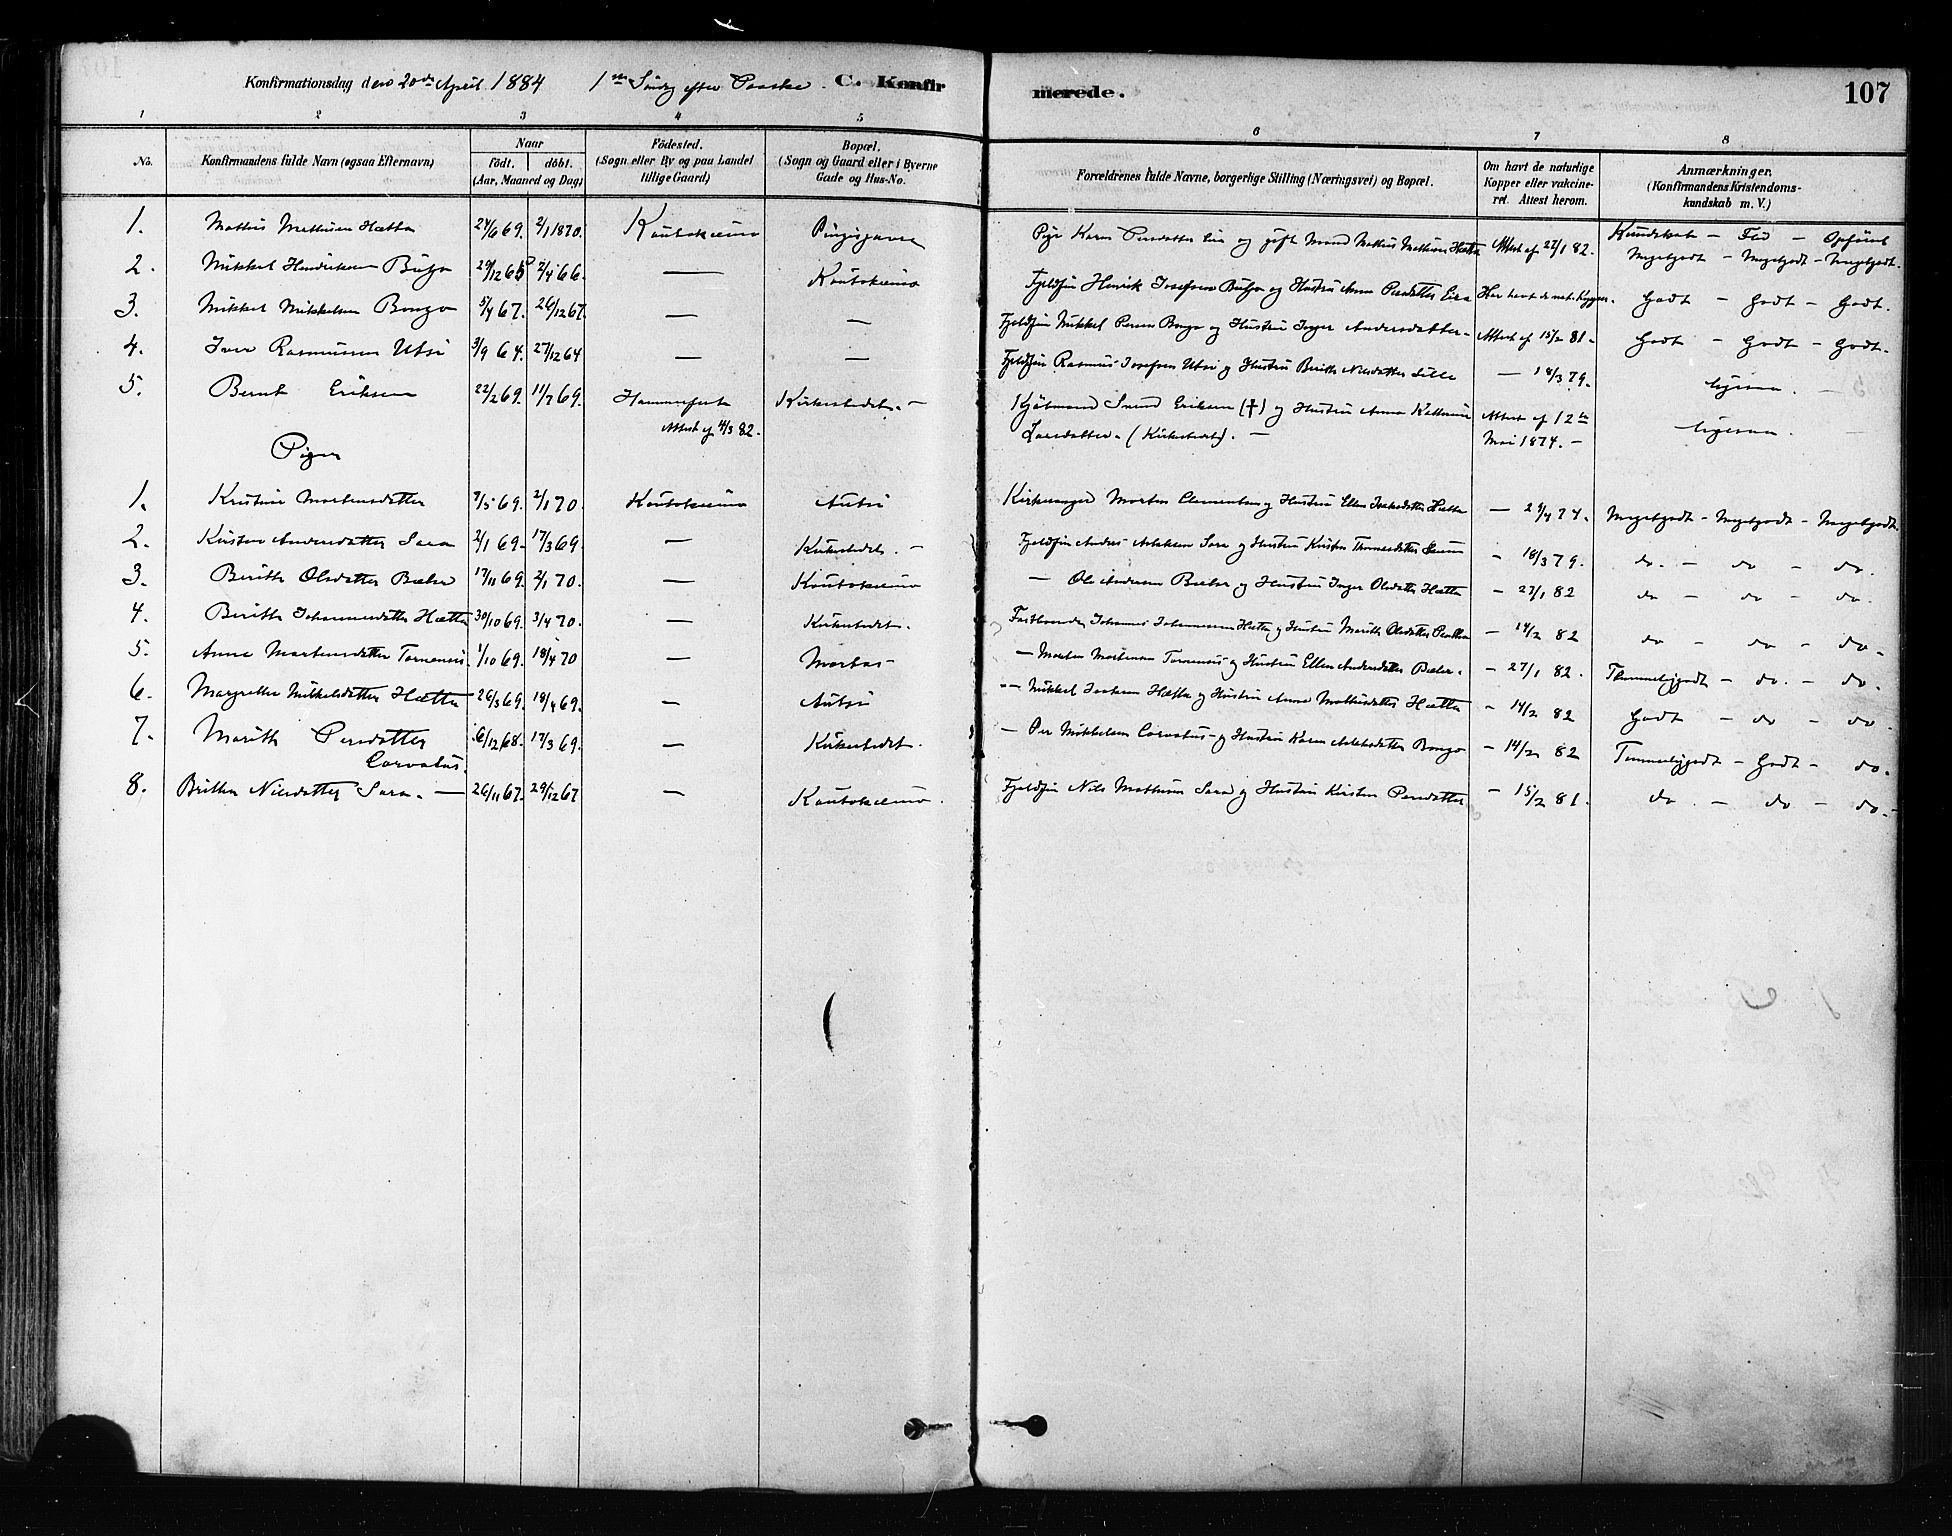 Konfirmationsdag den 20de April 1884 1ste Søndag efter Paaske. C. Konfirmerede. 107
1 2 3 4 5 6 7 8
No. Konfirmandens fulde Navn (ogsaa Efternavn) Naar födt. döbt. (Aar, Maaned og Dag) Födested. (Sogn eller By og paa Landet tillige Gaard) Bopæl. (Sogn og Gaard eller i Byerne Gade og Hus-No. Forældrenes fulde Navne, borgerlige Stilling (Næringsvei) og Bopæl. Om havt de naturlige Kopper eller vakcineret. Attest herom. Anmærkninger. (Konfirmandens Kristendomskundskab m. V.)
Kundskab – Flid – Opførsel
1. Mathis Mathisen Hætta 24/6 69. 2/1 1870. Kautokeino Pige Karen Persdatter Eira og gift Mand Mathis Mathisen Hætta Attest af 27/1 82. Megetgodt – Megetgodt – Megetgodt.
2. Mikkel Henriksen Buljo 29/12 65 2/4 66. — Kautokeino Fjeldfin Henrik Josefsen Buljo og Hustru Anne Persdatter Eira Har havt de nat. Kopper. Godt – Godt – Godt.
3. Mikkel Mikkelsen Bongo 5/4 67. 26/12 67. — — Fjeldfin Mikkel Persen Bongo og Hustru Inger Andersdatter – Attest af 15/2 81. Godt – Godt – Godt.
4. Iver Rasmussen Utsi 3/9 64. 27/12 64 — — Fjeldfin Rasmus Josefsen Utsi og Hustru Berith Nilsdatter — 18/3 79. ligesaa.
5. Bernt Eriksen 22/2 69. 11/7 69. Hammerfest Kirkestedet. – Eriksen (†) og Hustru Anna Kathrine Attest af 12te ligesaa. –
Attest af 4/3 82. Larsdatter. (Kirkestedet). – Mai 1874. –
Piger
1. Kristine Mortensdatter 7/5 69. 2/1 70. Kautokeino Autsi Kirkesanger Morten Clementsen og Hustru Ellen Isaksdatter Hætta — 29/4 74. Megetgodt – Megetgodt – Megetgodt
2. Kirsten Andersdatter Sara 2/1 69. 17/3 69. — Kirkestedet. – Fjeldfin Anders Aslaksen Sara og Hustru Kirsten Thomasdatter – 18/3 79. do. – do – do.
3. Berith Olsdatter Bæhr 17/11 69. 2/1 70. — Kautokeino — Ole Andersen Bæhr og Hustru Inger Olsdatter Hætta – 27/1 82 do – do – do.
4. Berith Johannesdatter Hætta 30/10 69. 3/4 70. — Kirkestedet. Fastboende Johannes Johannesen Hætta og Hustru Marith Olsdatter – 14/2 82 do – do – do.
5. Anne Mortensdatter Tornensis. 1/10 69. 18/4 70 — Mortas – – Morten Mortensen Tornensis og Hustru Ellen Andersdatter Bæhr. – 27/1 82. Temmeliggodt – do. – do.
6. Margrethe Mikkelsdatter Hætta 26/3 69. 18/4 69. — Autsi – Mikkel Isaksen Hætta og Hustru Anne Mathisdatter Hætta – 14/2 82 Godt – do – do.
7. Marith Persdatter 6/12 68. 17/3 69. — Kirkestedet. – Per Mikkelsen Corvatus og Hustru Karen Aslaksdatter Bongo – 14/2 82 Temmeliggodt – Godt – do.
Corvatus.
8. Britha Nilsdatter Sara. — 26/11 67. 29/12 67 — Kautokeino. Fjeldfin Nils Mathisen Sara og Hustru Kirsten Persdatter – 15/2 81. do. – do – do. –